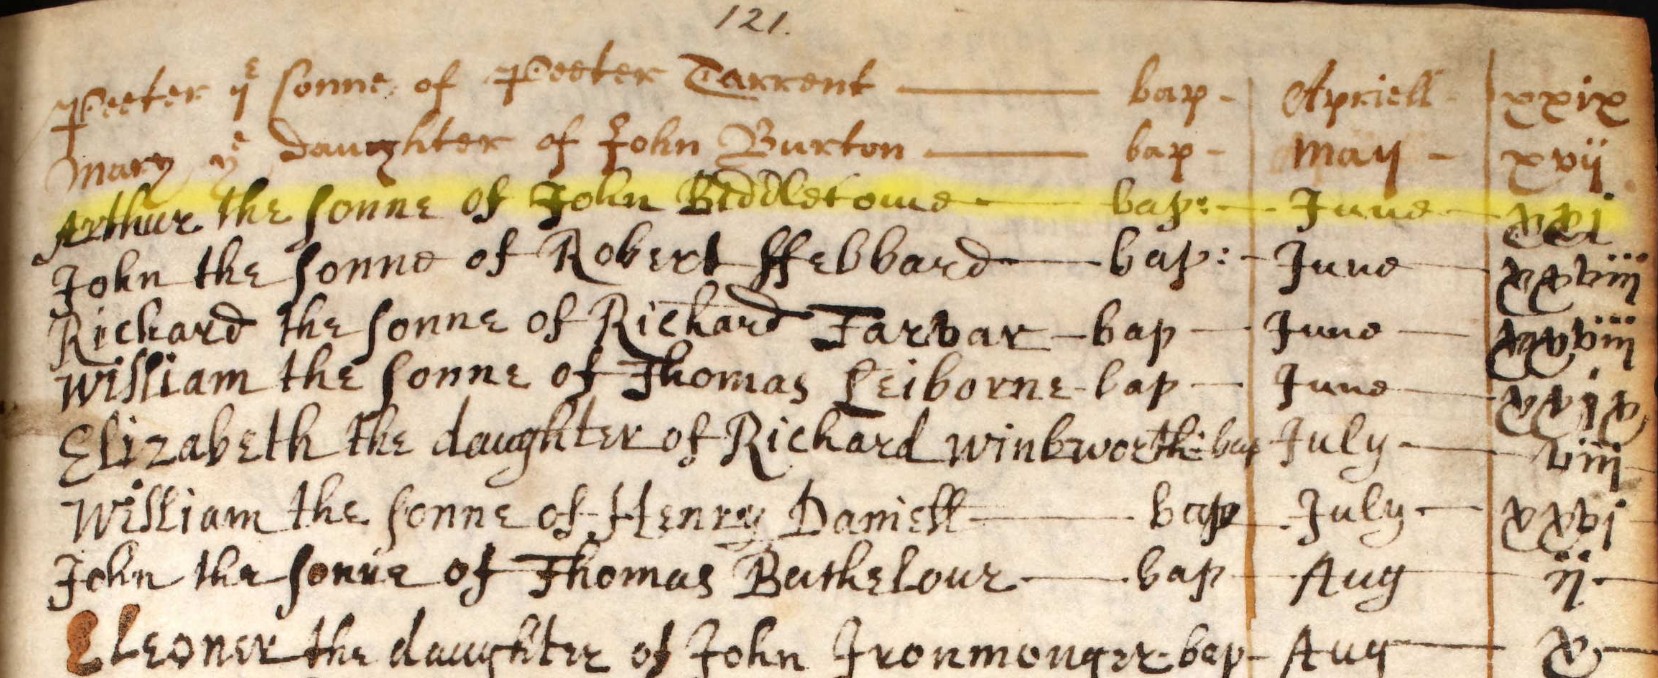 121.
Peeter yͤ sonne of Peeter Tarrent bap Apriell xxix
Mary yͤ daughter of John Burton bap May xvij
Arthur the sonne of John Biddlecome bap: June xxj
John the sonne of Robert Hebbard bap: June xxviij
Richard the sonne of Richard Farvar bap June xxviij
William the sonne of Thomas Leiborne bap June xxix
Elizabeth the daughter of Richard Winkworth bap July viij
William the sonne of Henry Daniell bap July xxvj
John the sonne of Thomas Bathelour bap Aug ij
Eleoner the daughter of John Ironmonger bap Aug